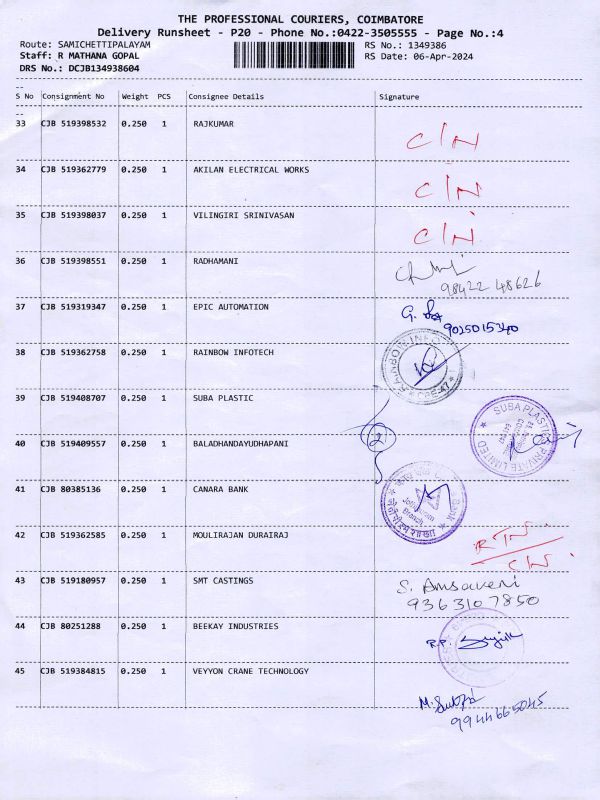 THE PROFESSIONAL COURIERS, COIMBATORE
Delivery Runsheet - P20 - Phone No.:0422-3505555 - Page No.:4
Route: SAMICHETTIPALAYAM RS No.: 1349386
Staff: R MATHANA GOPAL RS Date: 06-Apr-2024
DRS No.: DCJB134938604
S No Consignment No Weight PCS Consignee Details Signature
33 CJB 519398532 0.250 1 RAJKUMAR C/N
34 CJB 519362779 0.250 1 AKILAN ELECTRICAL WORKS C/N
35 CJB 519398037 0.250 1 VILINGIRI SRINIVASAN C/N
36 CJB 519398551 0.250 1 RADHAMANI
98422 48626
37 CJB 519319347 0.250 1 EPIC AUTOMATION G.
9025015340
38 CJB 519362758 0.250 1 RAINBOW INFOTECH
RAINBOW INFO
CBE-47
39 CJB 519408707 0.250 1 SUBA PLASTIC
SUBA PLASTIC PRIVATE LIMITED
40 CJB 519409557 0.250 1 BALADHANDAYUDHAPANI
2
41 CJB 80385136 0.250 1 CANARA BANK
Bank
Branch
42 CJB 519362585 0.250 1 MOULIRAJAN DURAIRAJ RTN
C/N
43 CJB 519180957 0.250 1 SMT CASTINGS S. Amsaveni
936310 7850
44 CJB 80251288 0.250 1 BEEKAY INDUSTRIES R.P.
45 CJB 519384815 0.250 1 VEYYON CRANE TECHNOLOGY
M.
9944665045